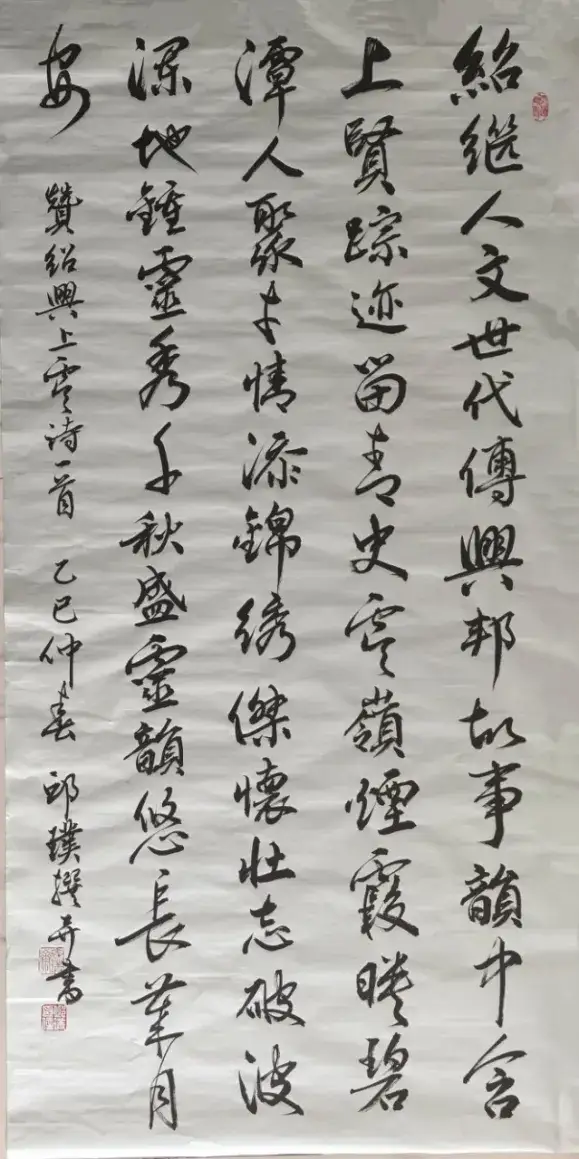 紹继人文世代傳興邦故事韻中含
上賢踪迹留青史虞嶺煙霞映碧
潭人聚才情添錦绣傑懷壮志破波
瀾地鍾靈秀千秋盛靈韻悠長歲月
安 赞绍興上虞诗一首 乙巳仲春 邱璞撰并書